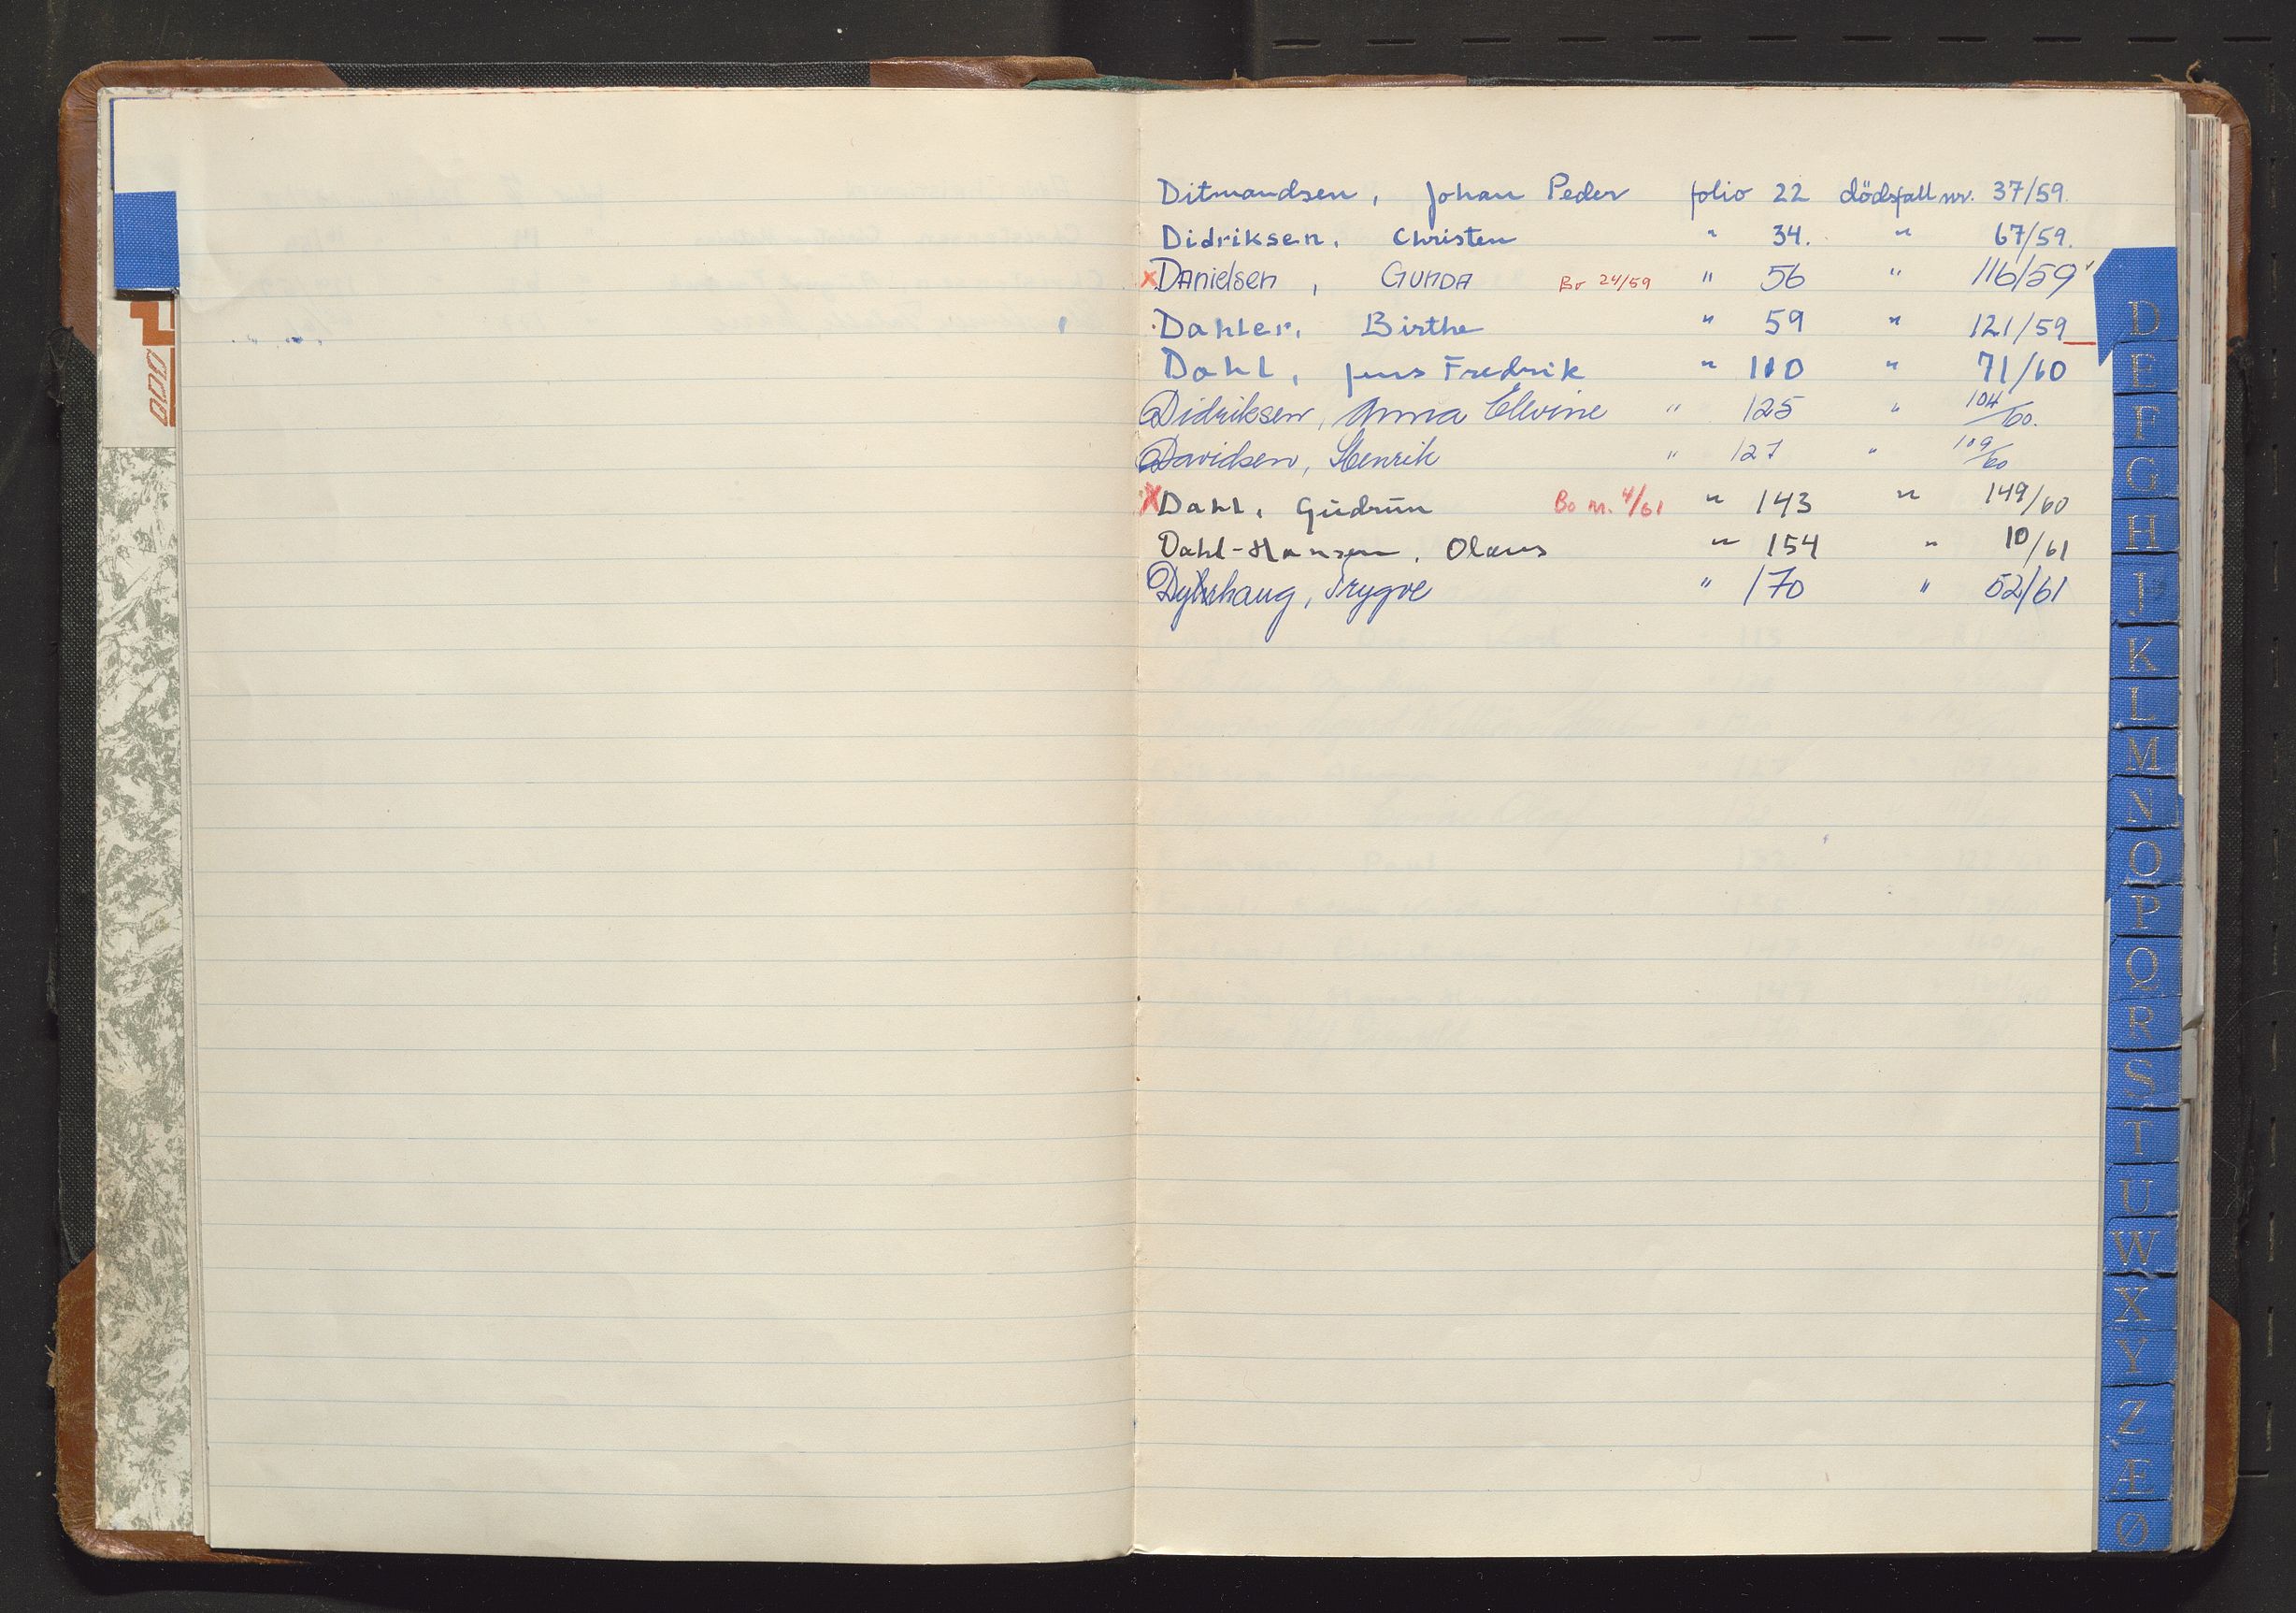 Ditmandsen, Johan Peder folio 22 dödsfall nr. 37/59.
Didriksen, Christen " 34. " 67/59.
x Danielsen, Gunda Bo 24/59 " 56 " 116/59
Dahler, Birthe " 59 " 121/59
Dahl, Jens Fredrik " 110 " 71/60
Didriksen, Anna Elvine " 125 " 104/60.
Davidsen, Henrik " 127 " 109/60
x Dahl, Gudrun Bo nr. 4/61 " 143 " 149/60
Dahl-Hansen, Olaus " 154 " 10/61
Trygve " 170 " 52/61
D
E
F
G
H
J
K
L
M
N
O
P
Q
R
S
T
U
W
X
Y
Z
Æ
Ø